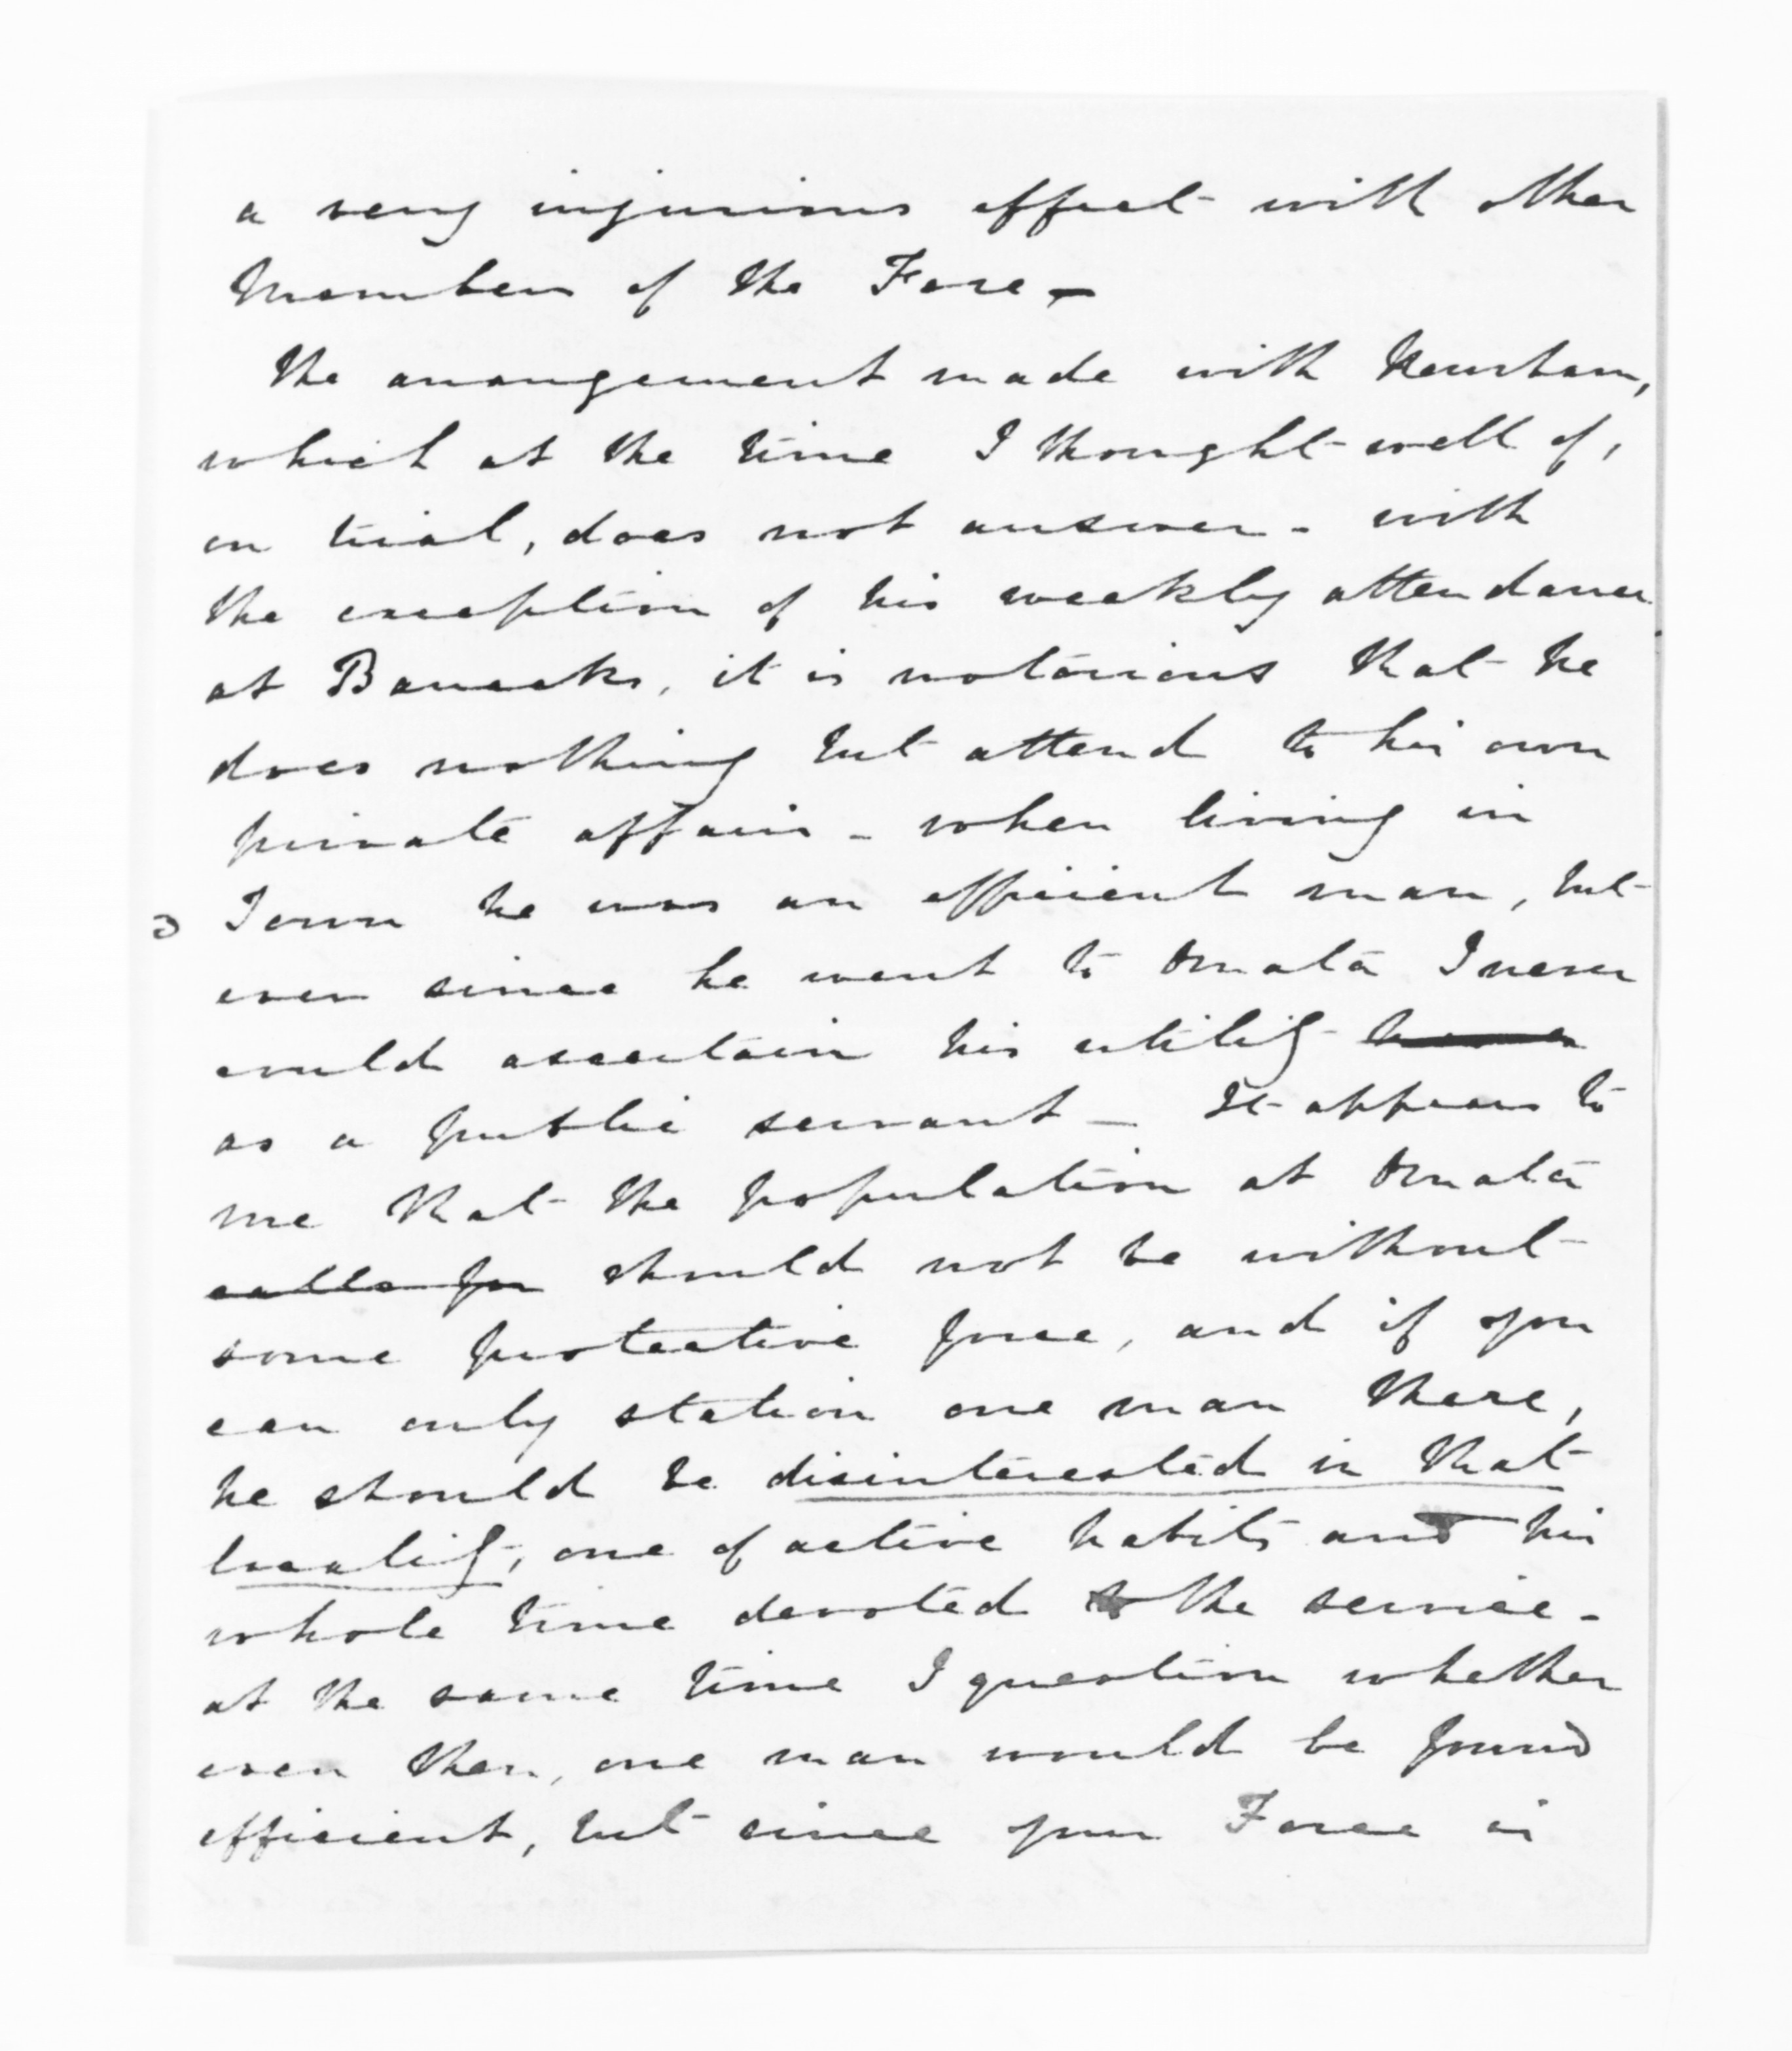 a very injurious effect with other
Members of the Force -
The arrangement made with Newsham,
which at the time I thought well of,
on trial, does not answer - with
the exception of his weekly attendance
at Barracks, it is notorious that he
does nothing but attend to his own
private affairs - when living in
Town he was an efficient man, but
ever since he went to Omata I never
could ascertain his utility
as a public servant - It appears to
me that the population at Omata
calls for should not be without
some protective force, and if you
can only station one man there,
he should be disinterested in that
locality, one of active habits and his
whole time devoted to the service -
at the same time I question whether
even then, one man would be found
efficient, but since your Force is